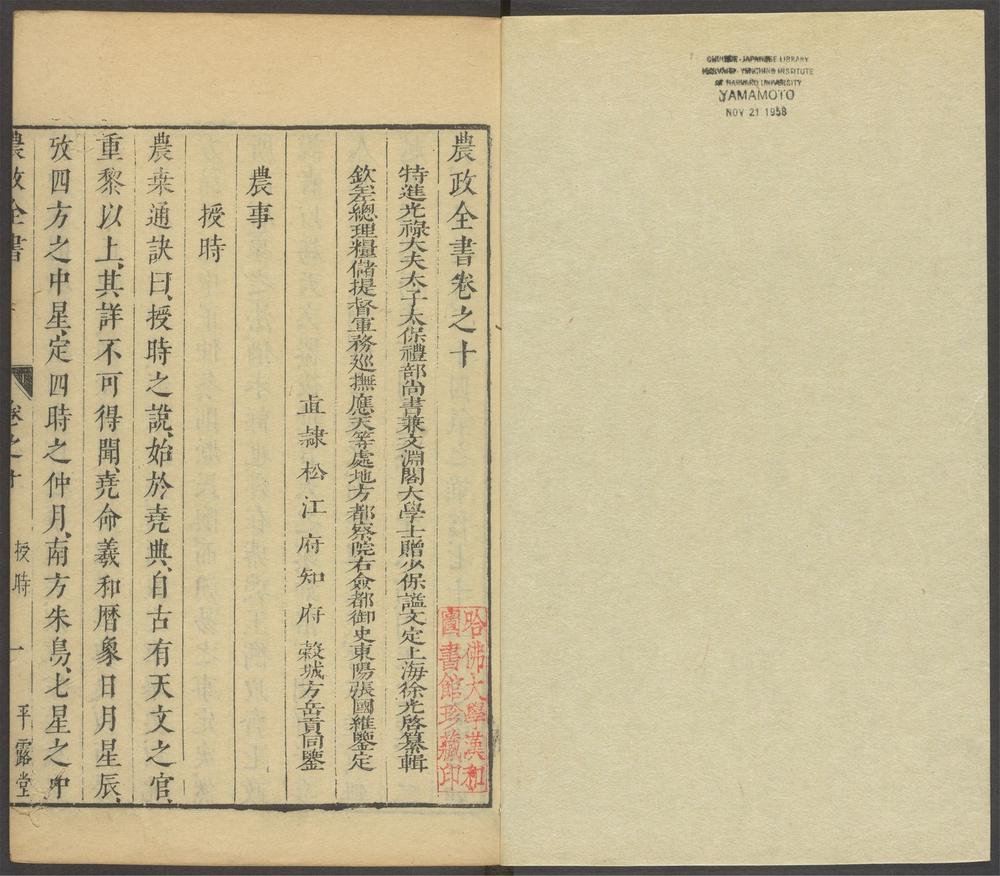 CHINESE-JAPANESE LIBRARY
HARVARD-YENCHING INSTITUTE
OF HARVARD UNIVERSITY
YAMAMOTO
NOV 21 1958
農政全書卷之十
特進光祿大夫太子太保禮部尚書兼文淵閣大學士贈少保謚文定上海徐光啓纂輯
欽差總理糧儲提督軍務巡撫應天等處地方都察院右僉都御史東陽張國維鑒定
直隷松江府知府穀城方岳貢同鑒
農事
授時
農桒通訣曰、授時之說、始於堯典、自古有天文之官、
重黎以上、其詳不可得聞、堯命羲和曆象日月星辰、
攷四方之中星、定四時之仲月、南方朱鳥、七星之中
農政全書
卷之十
授時
一
平露堂
哈佛大學漢和
圖書館珍藏印